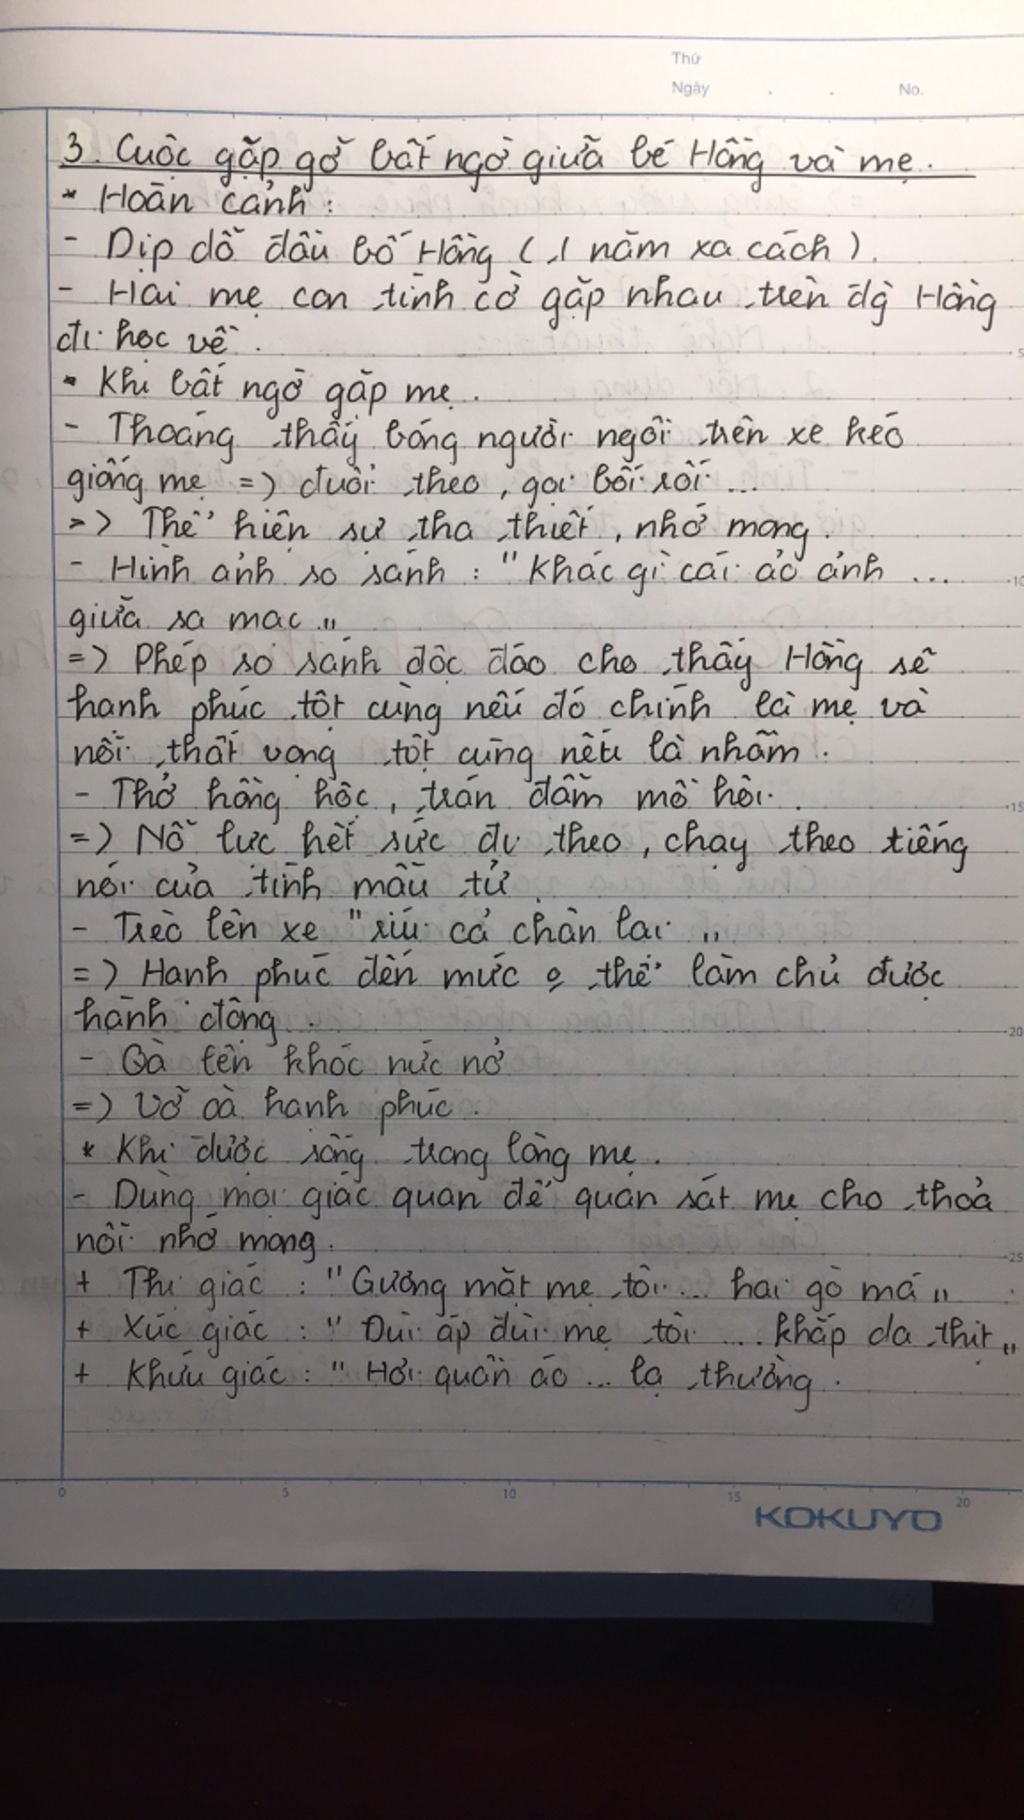 Thứ
Ngày . . No.
3. Cuộc gặp gỡ bất ngờ giữa bé Hồng và mẹ.
* Hoàn cảnh :
- Dịp dỗ đầu bố Hồng ( 1 năm xa cách ).
- Hai mẹ con tình cờ gặp nhau trên đg̀ Hồng
đi học về.
* Khi bất ngờ gặp mẹ.
- Thoáng thấy bóng người ngồi trên xe kéo
giống mẹ => đuổi theo, gọi bối rối ...
=> Thể hiện sự tha thiết, nhớ mong.
- Hình ảnh so sánh : "Khác gì cái ảo ảnh ...
giữa sa mạc"
=> Phép so sánh độc đáo cho thấy Hồng sẽ
hạnh phúc tột cùng nếu đó chính là mẹ và
nỗi thất vọng tột cùng nếu là nhầm.
- Thở hồng hộc, trán đẫm mồ hôi.
=> Nỗ lực hết sức đi theo, chạy theo tiếng
nói của tình mẫu tử
- Trèo lên xe "ríu cả chân lại"
=> Hạnh phúc đến mức o thể làm chủ được
hành động.
- Oà lên khóc nức nở
=> Vỡ oà hạnh phúc.
* Khi được sống trong lòng mẹ.
- Dùng mọi giác quan để quan sát mẹ cho thoả
nỗi nhớ mong.
+ Thị giác : "Gương mặt mẹ tôi ... hai gò má"
+ Xúc giác : "Đùi áp đùi mẹ tôi ... khắp da thịt"
+ Khứu giác : "Hơi quần áo ... lạ thường.
0 5 10 15 20
5
10
15
20
25
KOKUYO